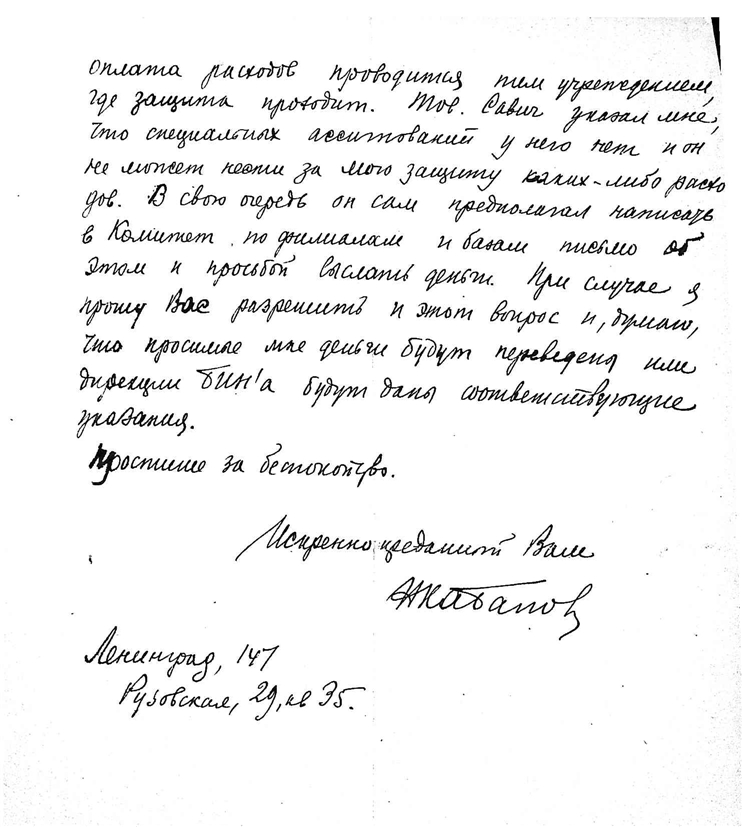 оплата расходов проводится тем учреждением,
где защита проходит. Тов. Савич указал мне,
что специальных ассигнований у него нет и он
не может нести за мою защиту каких-либо расхо
дов. В свою очередь он сам предполагал написать
в Комитет по филиалам и базам письмо об
этом и просьбой выслать деньги. При случае я
прошу Вас разрешить и этот вопрос и, думаю,
что просимые мне деньги будут переведены или
дирекции БИН'а будут даны соответствующие
указания.
Простите за беспокойство.
Искренно преданный Вам
Ленинград, 147
Рузовская, 29, кв 35.